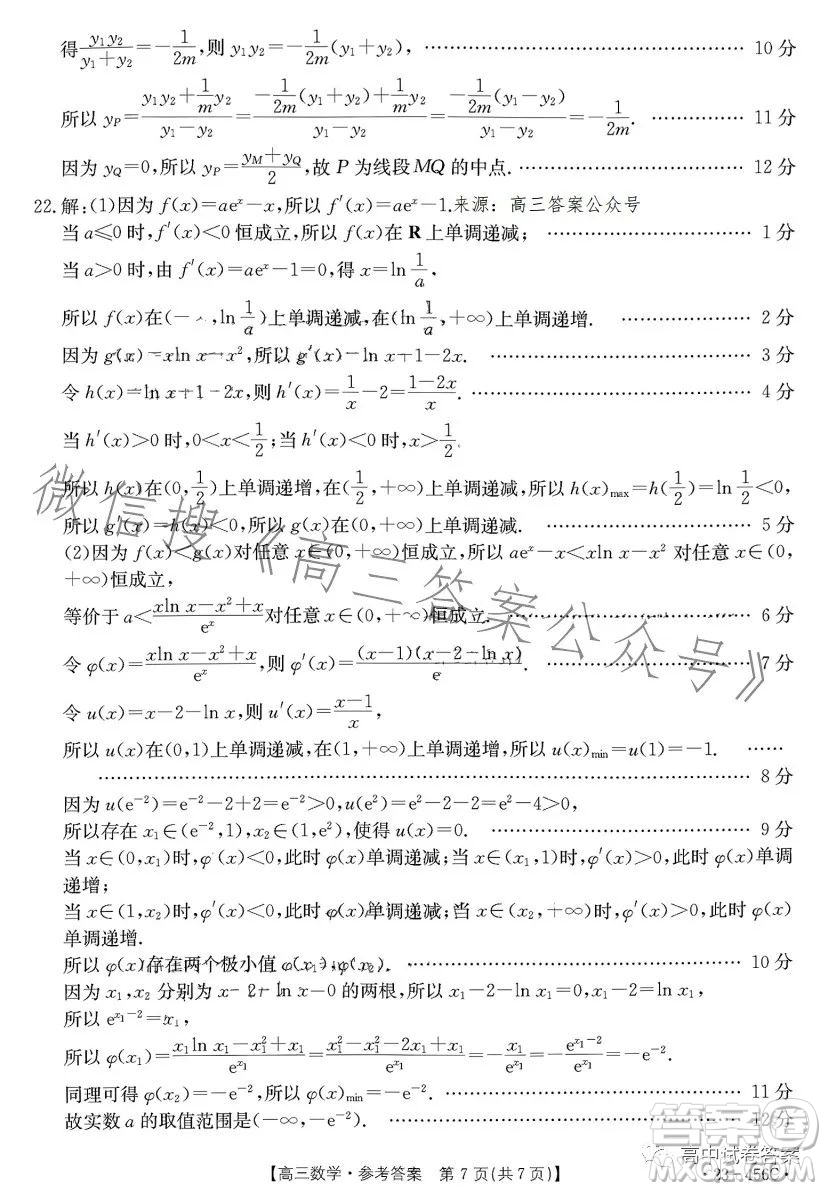 得\frac{y_1y_2}{y_1+y_2}=-\frac{1}{2m},则 y_1y_2=-\frac{1}{2m}(y_1+y_2), ……………… 10 分
所以 y_P=\frac{y_1y_2+\frac{1}{m}y_2}{y_1-y_2}=\frac{-\frac{1}{2m}(y_1+y_2)+\frac{1}{m}y_2}{y_1-y_2}=\frac{-\frac{1}{2m}(y_1-y_2)}{y_1-y_2}=-\frac{1}{2m}. ……………… 11 分
因为 y_Q=0,所以 y_P=\frac{y_M+y_Q}{2},故 P 为线段 MQ 的中点. ……………… 12 分
22.解:(1)因为 f(x)=ae^x-x,所以 f'(x)=ae^x-1.来源：高三答案公众号
当 a≤0 时,f'(x)<0 恒成立,所以 f(x)在 R 上单调递减; ……………… 1 分
当 a>0 时,由 f'(x)=ae^x-1=0,得 x=ln\frac{1}{a},
所以 f(x)在(- ,ln\frac{1}{a})上单调递减,在(ln\frac{1}{a},+∞)上单调递增. ……………… 2 分
因为 g(x)=xln x-x^2,所以 g'(x)=ln x+1-2x. ……………… 3 分
令 h(x)=ln x+1-2x,则 h'(x)=\frac{1}{x}-2=\frac{1-2x}{x}. ……………… 4 分
当 h'(x)>0 时,0<x<\frac{1}{2};当 h'(x)<0 时,x>\frac{1}{2}.
所以 h(x)在(0,\frac{1}{2})上单调递增,在(\frac{1}{2},+∞)上单调递减,所以 h(x)_{max}=h(\frac{1}{2})=ln\frac{1}{2}<0,
所以 g'(x)=h(x)<0,所以 g(x)在(0,+∞)上单调递减. ……………… 5 分
(2)因为 f(x)<g(x)对任意 x∈(0,+∞)恒成立,所以 ae^x-x<xln x-x^2 对任意 x∈(0,
+∞)恒成立,
等价于 a<\frac{xln x-x^2+x}{e^x}对任意 x∈(0,+∞)恒成立. ……………… 6 分
令 φ(x)=\frac{xln x-x^2+x}{e^x},则 φ'(x)=\frac{(x-1)(x-2-ln x)}{e}. ……………… 7 分
令 u(x)=x-2-ln x,则 u'(x)=\frac{x-1}{x},
所以 u(x)在(0,1)上单调递减,在(1,+∞)上单调递增,所以 u(x)_{min}=u(1)=-1. ……
……………… 8 分
因为 u(e^{-2})=e^{-2}-2+2=e^{-2}>0,u(e^2)=e^2-2-2=e^2-4>0,
所以存在 x_1∈(e^{-2},1),x_2∈(1,e^2),使得 u(x)=0. ……………… 9 分
当 x∈(0,x_1)时,φ'(x)<0,此时 φ(x)单调递减;当 x∈(x_1,1)时,φ'(x)>0,此时 φ(x)单调
递增;
当 x∈(1,x_2)时,φ'(x)<0,此时 φ(x)单调递减;当 x∈(x_2,+∞)时,φ'(x)>0,此时 φ(x)
单调递增.
所以 φ(x)存在两个极小值 φ(x_1),φ(x_2). ……………… 10 分
因为 x_1,x_2 分别为 x-2-ln x=0 的两根,所以 x_1-2-ln x_1=0,所以 ln x_1=x_1-2,
所以 e^{x_1-2}=x_1,
所以 φ(x_1)=\frac{x_1ln x_1-x_1^2+x_1}{e^{x_1}}=\frac{x_1^2-x_1^2-2x_1+x_1}{e^{x_1}}=-\frac{x_1}{e^{x_1}}=-\frac{e^{x_1-2}}{e^{x_1}}=-e^{-2}.
同理可得 φ(x_2)=-e^{-2},所以 φ(x)_{min}=-e^{-2}. ……………… 11 分
故实数 a 的取值范围是(-∞,-e^{-2}). ……………… 12 分
【高三数学·参考答案 第 7 页(共 7 页)】
·23-456C·
微信搜《高三答案公众号》
答案圈
高中试卷答案